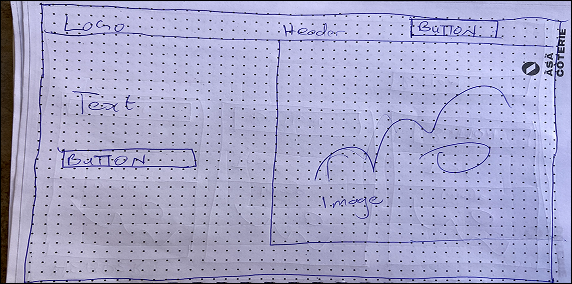 Logo Header BUTTON
ASA COTERIE
Text
BUTTON
Image